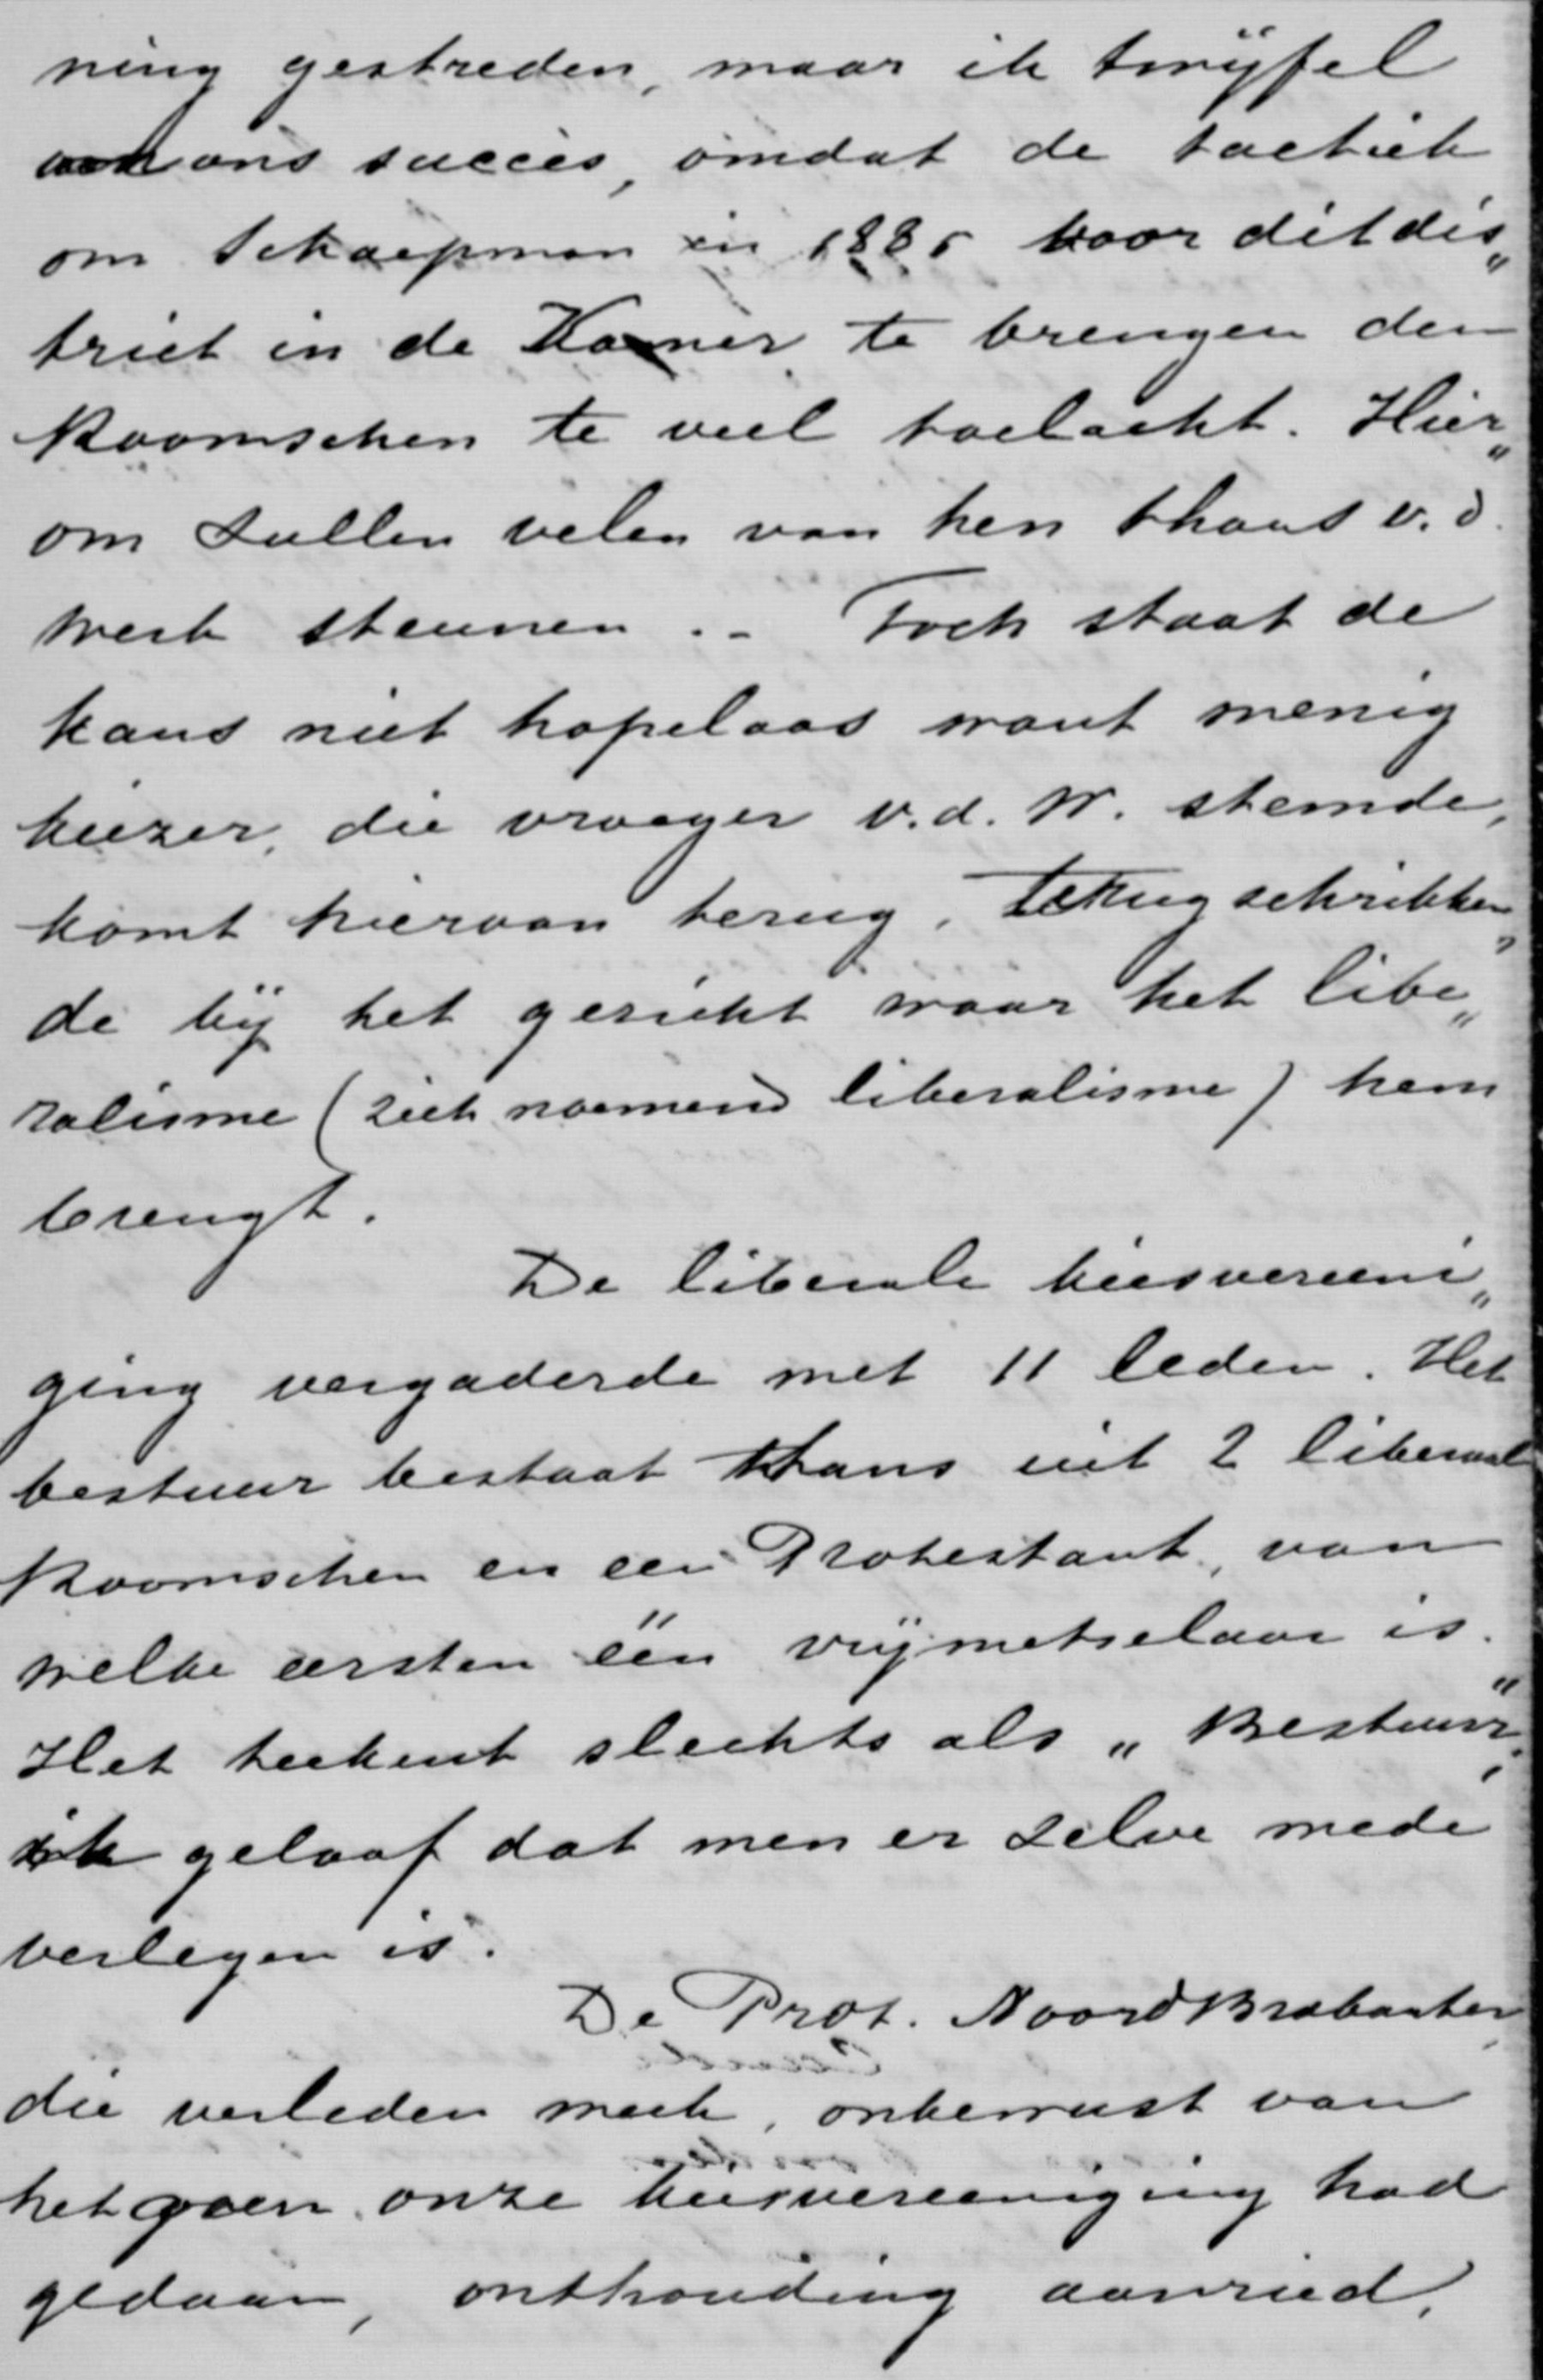 ning gestreden, maar ik twijfel
aan ons succes, omdat de tactiek
om Schaepman in 1885 voor dit dis„
trict in de Kamer te brengen den
Roomschen te veel toelacht. Hier„
om zullen velen van hen thans v. d.
Werk steunen. - Toch staat de
kans niet hopeloos want menig
kiezer, die vroeger v. d. W. stemde,
komt hiervan terug, terugschrikken„
de bij het gezicht waar het libe„
ralisme (zich noemend liberalisme) hem
brengt.
De liberale kiesvereeni„
ging vergaderde met 11 leden. Het
bestuur bestaat thans uit 2 liberaal
Roomschen en een Protestant, van
welke eersten één vrijmetselaar is.
Het teekent slechts als „Bestuur"
ik geloof dat men er zelve mede
verlegen is.
De Prot. Noord Brabanter
die verleden week, onbewust van
hetgeen onze kiesvereeniging had
gedaan, onthouding aanried,